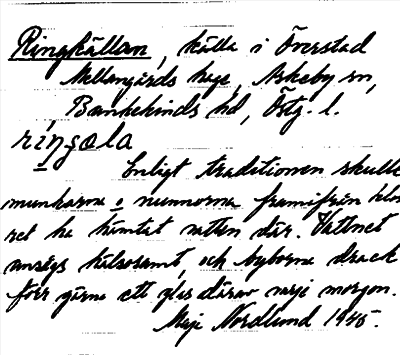 Ringkällan, källa i Överstad
Mellangårds hage, Askeby sn,
Bankekinds hd, Östg. l.
ríŋ̠gæla
Enligt traditionen skulle
munkarna o nunnorna framifrån klos
ret ha hämtat vatten där. Vattnet
ansågs hälsosamt, och byborna drack
förr gärna ett glas därav varje morgon.
Maja Nordlund 1945.